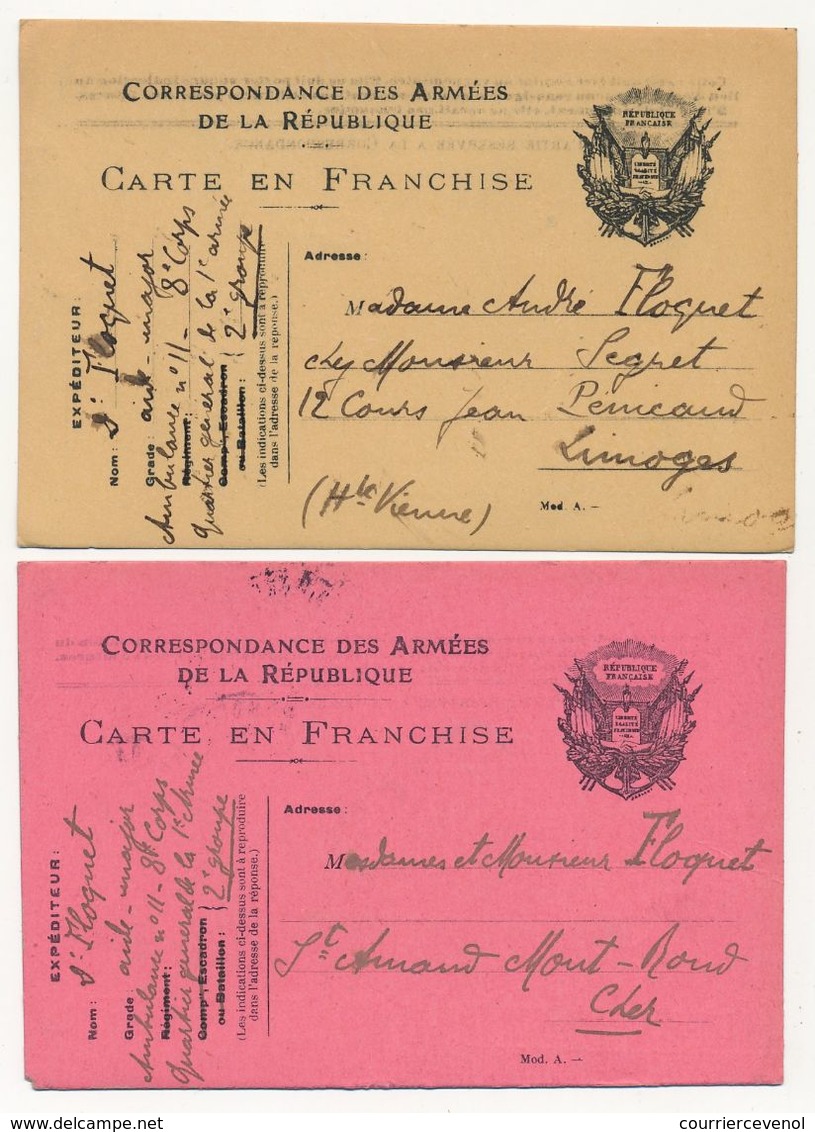 CORRESPONDANCE DES ARMÉES
DE LA RÉPUBLIQUE
CARTE EN FRANCHISE
RÉPUBLIQUE
FRANÇAISE
LIBERTÉ
ÉGALITÉ
FRATERNITÉ
EXPÉDITEUR:
Nom: Dr Floquet
Grade: aide-major
Ambulance n° 11 - 8e Corps
Régiment:
quartier général de la 1e armée
Compie, Escadron
ou Bataillon: } 2e groupe
(Les indications ci-dessus sont à reproduire
dans l'adresse de la réponse.)
Adresse:
Madame André Floquet
chez Monsieur Segret
12 Cours Jean Pénicaud
Limoges
(Hte Vienne)
Mod. A. —
CORRESPONDANCE DES ARMÉES
DE LA RÉPUBLIQUE
CARTE EN FRANCHISE
RÉPUBLIQUE
FRANÇAISE
LIBERTÉ
ÉGALITÉ
FRATERNITÉ
EXPÉDITEUR:
Nom: Dr Floquet
Grade: aide-major
Ambulance n° 11 - 8e Corps
Régiment:
Quartier général de la 1e Armée
Compie, Escadron
ou Bataillon: } 2e groupe
(Les indications ci-dessus sont à reproduire
dans l'adresse de la réponse.)
Adresse:
Mesdames et Monsieur Floquet
St Amand Mont-Rond
Cher
Mod. A. —
courriercevenol